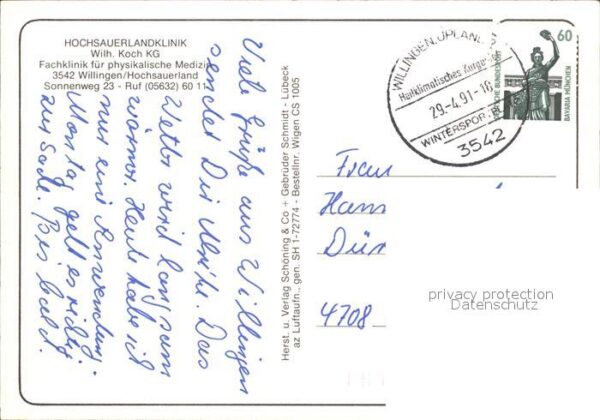 HOCHSAUERLANDKLINIK
Wilh. Koch KG
Fachklinik für physikalische Medizin
3542 Willingen/Hochsauerland
Sonnenweg 23 - Ruf (05632) 60 11
Viele Grüße aus Willingen
sendet Dir Ulrike. Das
Wetter wird langsam
wärmer. Heute habe ich
nur eine Anwendung.
Montag geht es richtig
zur Sache. Bis bald.
Herst. u. Verlag Schöning & Co + Gebrüder Schmidt - Lübeck
az Luftaufn., gen. SH 1-72774 - Bestellnr. Wigen CS 1005
WILLINGEN, UPLAND
Heilklimatisches Kurgebiet
29.-4.91-18
WINTERSPOR
3542
60
DEUTSCHE BUNDESPOST
BAVARIA MÜNCHEN
Frau
4708
privacy protection
Datenschutz